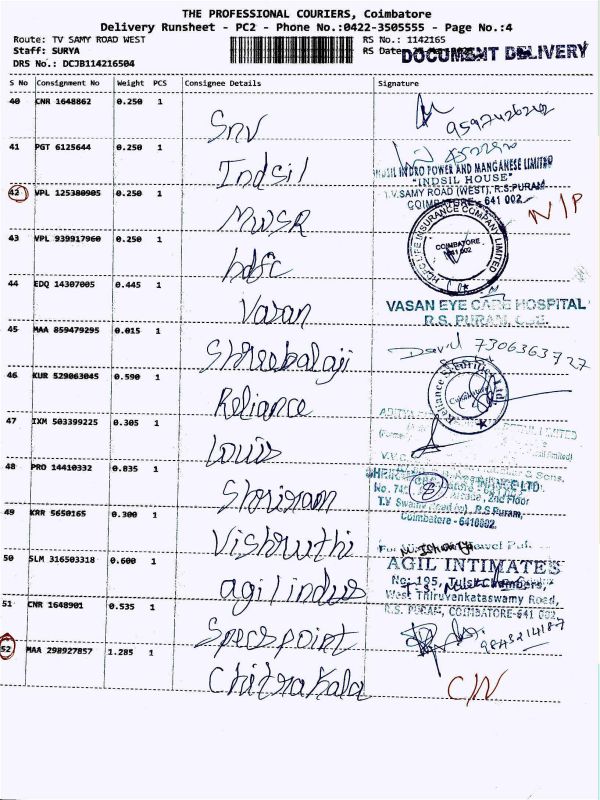 THE PROFESSIONAL COURIERS, Coimbatore
Delivery Runsheet - PC2 - Phone No.:0422-3505555 - Page No.:4
Route: TV SAMY ROAD WEST RS No.: 1142165
Staff: SURYA RS Date:
DOCUMENT DELIVERY
DRS No.: DCJB114216504
S No Consignment No Weight PCS Consignee Details Signature
40 CNR 1648862 0.250 1 Snv 9597426242
41 PGT 6125644 0.250 1 Indsil
INDSIL HYDRO POWER AND MANGANESE LIMITED
"INDSIL HOUSE"
T.V.SAMY ROAD (WEST), R.S.PURAM,
COIMBATORE - 641 002
42 VPL 125380905 0.250 1 MWSR N/P
43 VPL 939917960 0.250 1 hdfc
HDFC LIFE INSURANCE COMPANY LIMITED
COIMBATORE
641 002
44 EDQ 14307005 0.445 1 Vasan
VASAN EYE CARE HOSPITAL
R.S. PURAM, CBE.
45 MAA 859479295 0.015 1 Shreebalaji David 7306363727
46 KUR 529063045 0.590 1 Reliance
Reliance Securities Ltd
Coimbatore
47 IXM 503399225 0.305 1 Louis
ADITYA LIMITED
(Formerly Limited)
V.V.C. & Sons.
48 PRO 14410332 0.835 1 Shriram
SHRIRAM LTD.
No. 74 2nd Floor
8
T.V Swamy Road R.S Puram,
Coimbatore - 641002.
49 KRR 5650165 0.300 1 Vishruthi
For Travel
50 SLM 316503318 0.600 1 agil indus
AGIL INTIMATES
No: 195, Tulsi Chambers,
West Thiruvenkataswamy Road,
R.S. PURAM, COIMBATORE-641 002.
51 CNR 1648901 0.535 1 Specspoint 9843214187
52 MAA 298927857 1.285 1 Chitrakala C/N